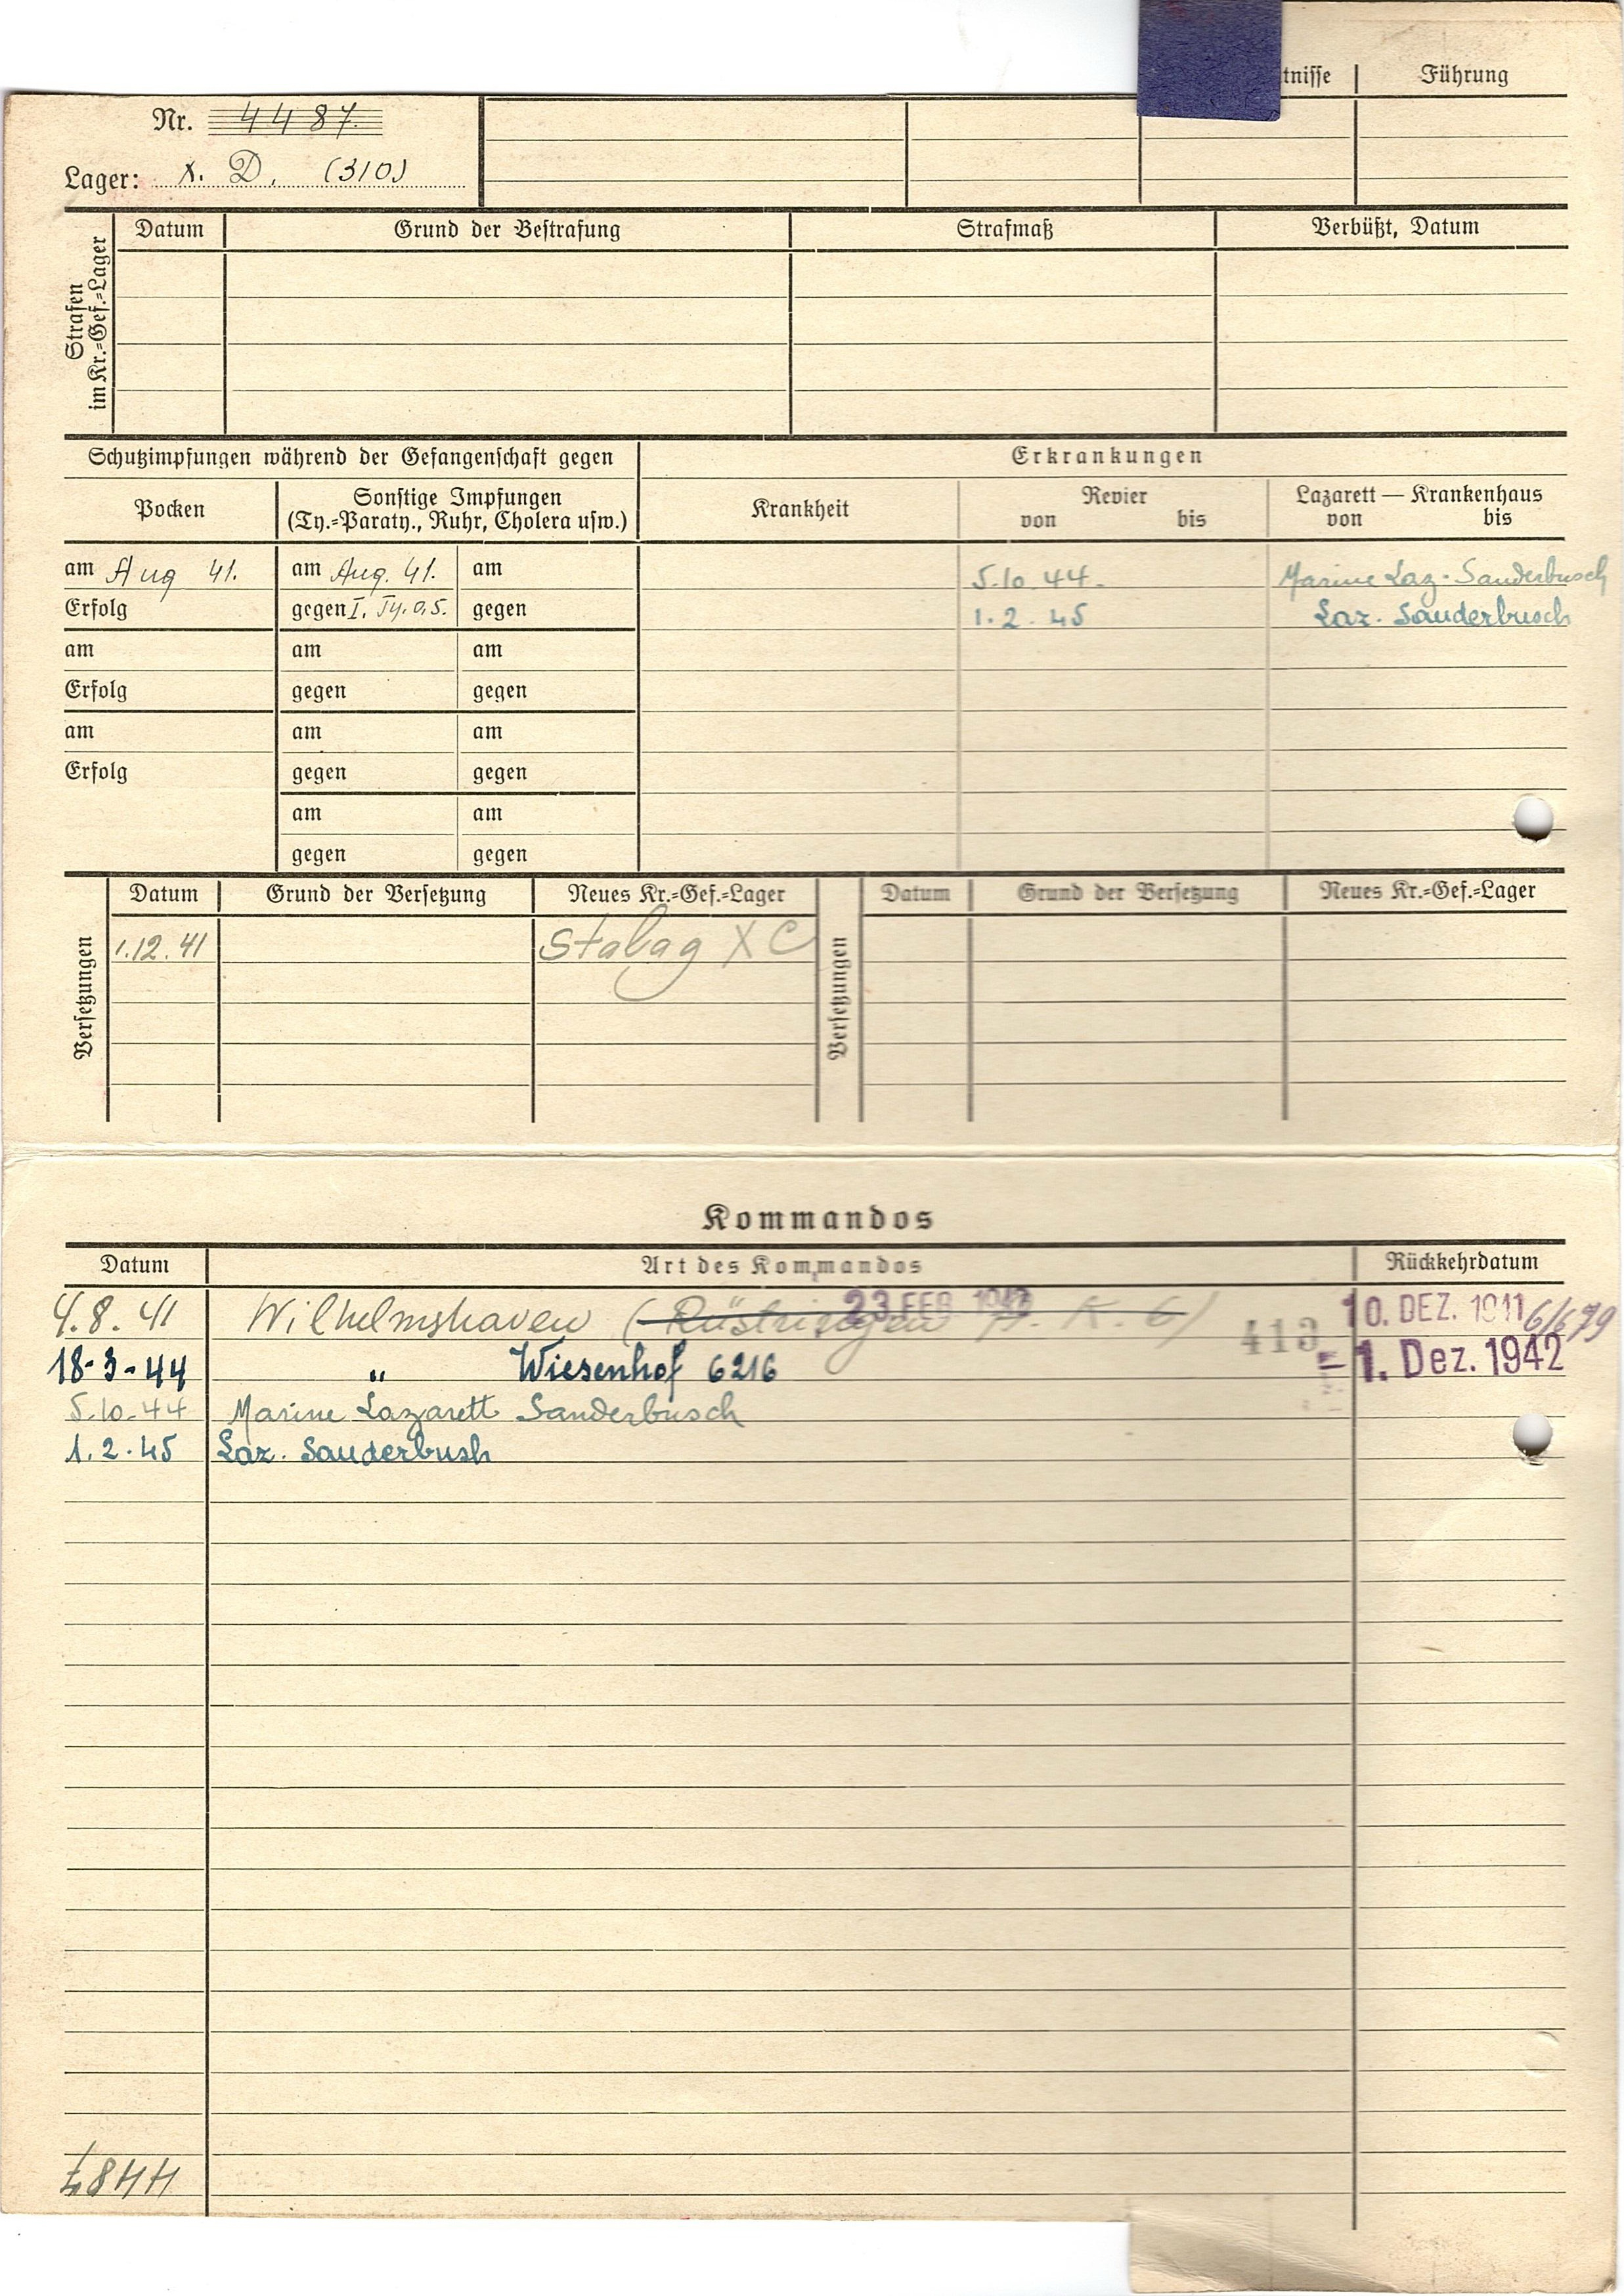 tnisse Führung
Nr. 4487
Lager: X. D. (310)
Strafen
im Kr.=Gef.=Lager
Datum Grund der Bestrafung Strafmaß Verbüßt, Datum
Schutzimpfungen während der Gefangenschaft gegen Erkrankungen
Pocken Sonstige Impfungen Krankheit Revier Lazarett — Krankenhaus
(Ty.=Paraty., Ruhr, Cholera usw.) von bis von bis
am Aug 41. am Aug. 41. am 5.10.44. Marine Laz. Sanderbusch
Erfolg gegen I. Ty. 0,5. gegen 1.2.45 Laz. Sanderbusch
am am am
Erfolg gegen gegen
am am am
Erfolg gegen gegen
am am
gegen gegen
Versetzungen Datum Grund der Versetzung Neues Kr.=Gef.=Lager Versetzungen Datum Grund der Versetzung Neues Kr.=Gef.=Lager
1.12.41 Stalag X C
Kommandos
Datum Art des Kommandos Rückkehrdatum
4.8.41 Wilhelmshaven (Rüstringen A. K. 6) 23. FEB. 413 10. DEZ. 1941
18-3-44 " Wiesenhof 6216 -1. Dez. 1942
5.10.44 Marine Lazarett Sanderbusch
1.2.45 Laz. Sanderbush
4487